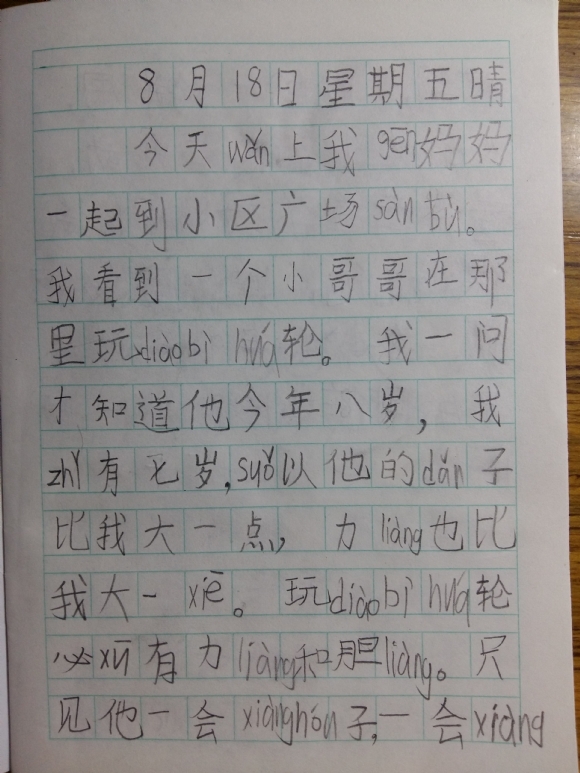 8月18日星期五晴
今天wǎn上我gēn妈妈
一起到小区广场sàn bù。
我看到一个小哥哥在那
里玩diàobì huá轮。我一问
才知道他今年八岁，我
zhǐ有七岁，suǒ以他的dǎn子
比我大一点，力liàng也比
我大一xiē。玩diàobì huá轮
必xū有力liàng和胆liàng。只
见他一会xiànghóu子，一会xiàng